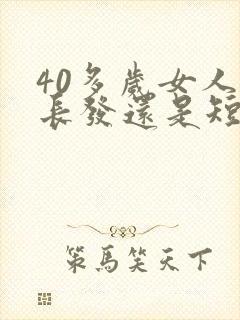 40多歲女人
長發還是短
策馬笑天下